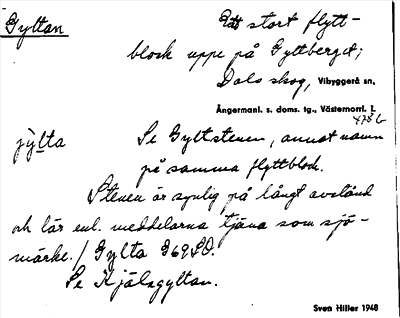 Gyltan
Ett stort flytt-
block uppe på Gyltberget;
Dals skog, Vibyggerå sn,
Ångermanl. s. doms. tg., Västernorrl. l.
jy̆lta
Se Gyltstenen, annat namn
på samma flyttblock.
Stenen är synlig på långt avstånd
och lär enl. meddelarna tjäna som sjö-
märke. / Gylta G69SO.
Se Kjälsgyltan.
Sven Hiller 1948